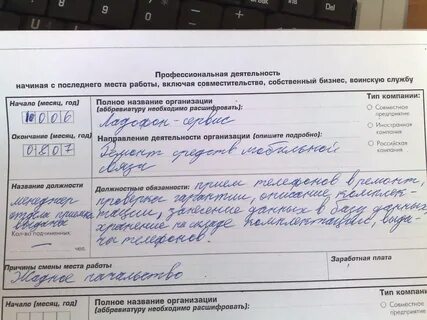 Профессиональная деятельность
начиная с последнего места работы, включая совместительство, собственный бизнес, воинскую службу
Начало (месяц, год)
1006
Полное название организации
(аббревиатуру необходимо расшифровать):
Ладофон-сервис
Тип компании:
Совместное
предприятие
Иностранная
компания
Российская
компания
Окончание (месяц, год)
0807
Направление деятельности организации (опишите подробно):
Ремонт средств мобильной
связи
Название должности
менеджер
отдела приемки
выдачи
Кол-во подчиненных
чел.
Должностные обязанности: прием телефонов в ремонт,
проверка гарантии, описание комплек-
тации, занесение данных в базу данных,
хранение на складе комплектаций, выда-
ча телефонов.
Причины смены места работы
Жадное начальство
Заработная плата
Начало (месяц, год)
Полное название организации
(аббревиатуру необходимо расшифровать):
Тип компании:
Совместное
предприятие